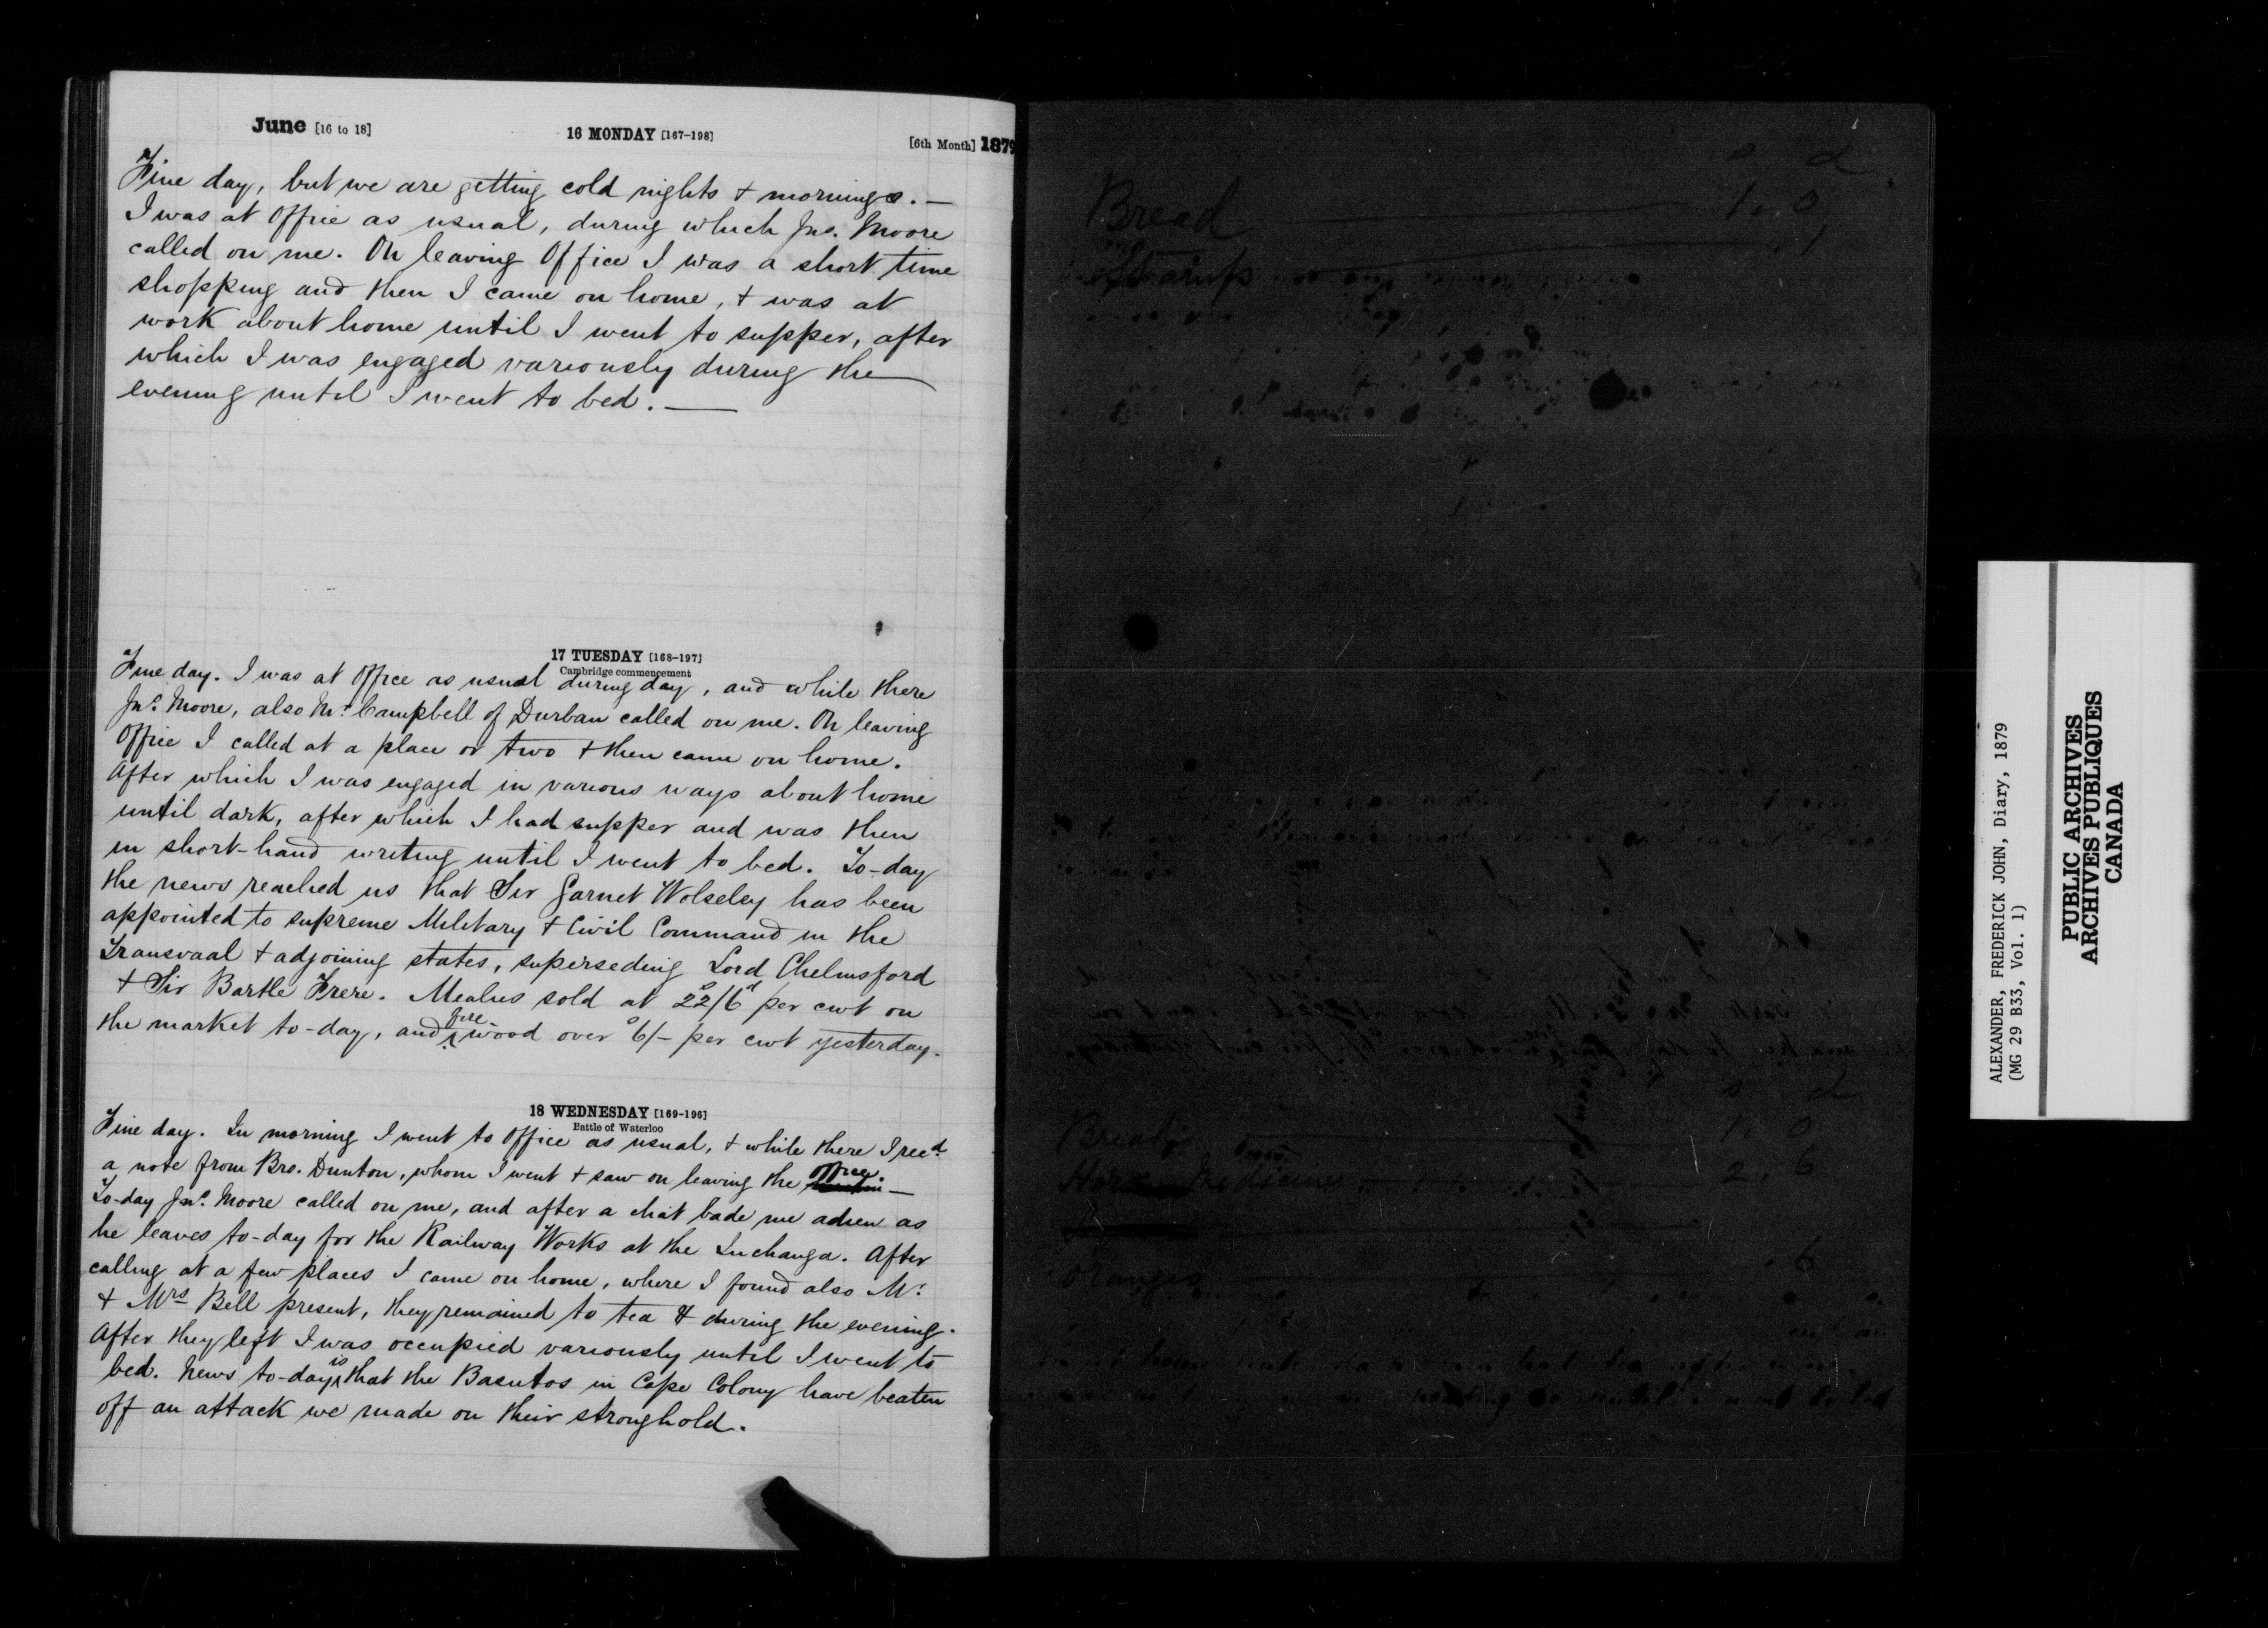 June [16 to 18]
16 MONDAY [167-198]
[6th Month] 1879
Fine day, but we are getting cold nights + mornings. —
I was at Office as usual, during which Jno. Moore
called on me. On leaving Office I was a short time
shopping and then I came on home, + was at
work about home until I went to supper, after
which I was engaged variously during the
evening until I went to bed. —
17 TUESDAY [168-197]
Cambridge commencement
Fine day. I was at Office as usual during day, and while there
Jno. Moore, also Mr. Campbell of Durban called on me. On leaving
Office I called at a place or two + then came on home.
After which I was engaged in various ways about home
until dark, after which I had supper and was then
in short-hand writing until I went to bed. To-day
the news reached us that Sir Garnet Wolseley has been
appointed to supreme Military + Civil Command in the
Transvaal + adjoining states, superseding Lord Chelmsford
+ Sir Bartle Frere. Mealies sold at 22s/6d per cwt on
the market to-day, and fire-wood over 6s/- per cwt yesterday.
18 WEDNESDAY [169-196]
Battle of Waterloo
Fine day. In morning I went to Office as usual, + while there I recd
a note from Bro. Dunton, whom I went + saw on leaving the Office —
To-day Jno. Moore called on me, and after a chat bade me adieu as
he leaves to-day for the Railway Works at the Inchanga. After
calling at a few places I came on home, where I found also Mr.
+ Mrs Bell present, they remained to tea & during the evening.
After they left I was occupied variously until I went to
bed. News to-day is that the Basutos in Cape Colony have beaten
off an attack we made on their stronghold.
s d
Bread 1. 0
Stamps . 1
s d
Bread 1. 0
Medicine 2. 6
Oranges . 6
ALEXANDER, FREDERICK JOHN, Diary, 1879
(MG 29 B33, Vol. 1)
PUBLIC ARCHIVES
ARCHIVES PUBLIQUES
CANADA